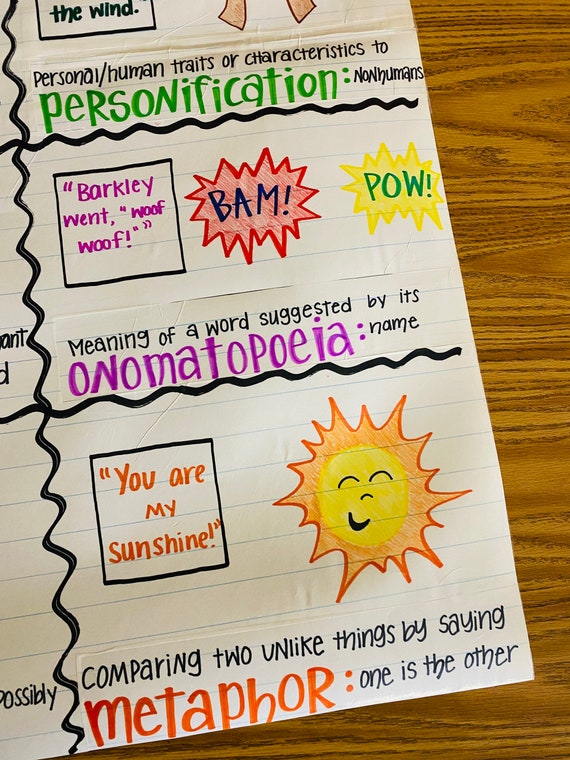 the wind."
Personal/human traits or characteristics to
Personification: Nonhumans
"Barkley
went, "woof
woof!""
BAM!
POW!
Meaning of a word suggested by its
Onomatopoeia: name
"You are
my
sunshine!"
Comparing two unlike things by saying
metaphor: one is the other
possibly